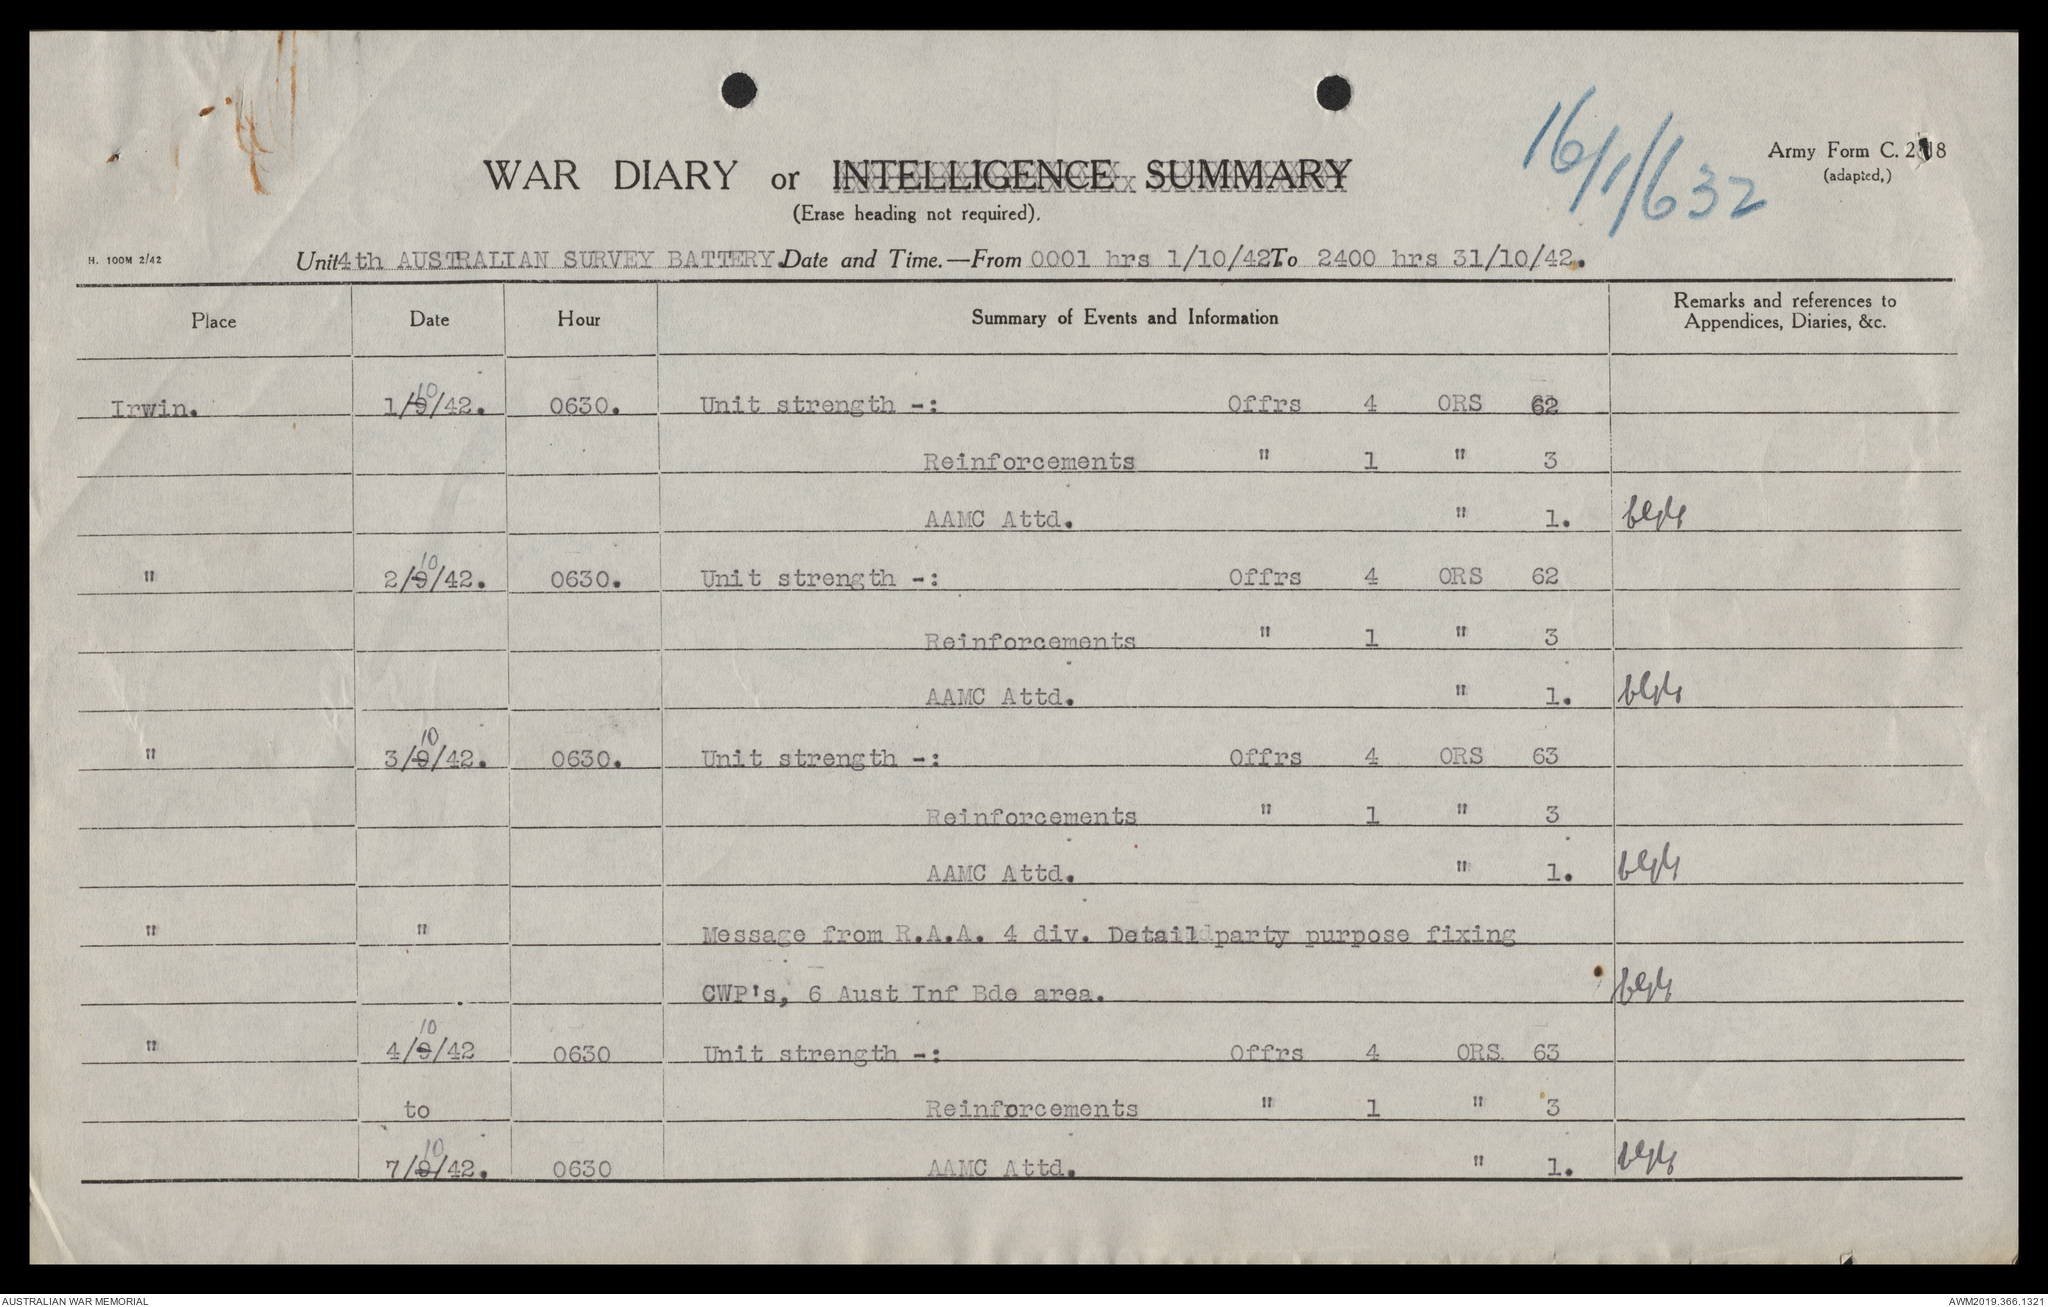 16/1/632
Army Form C. 2118
(adapted,)
WAR DIARY or INTELLIGENCE SUMMARY
(Erase heading not required).
H. 100M 2/42
Unit 4th AUSTRALIAN SURVEY BATTERY. Date and Time.—From 0001 hrs 1/10/42 To 2400 hrs 31/10/42.
Place Date Hour Summary of Events and Information Remarks and references to
Appendices, Diaries, &c.
Irwin. 1/9/42. 10 0630. Unit strength -: Offrs 4 ORS 62
Reinforcements " 1 " 3
AAMC Attd. " 1.
" 2/9/42. 10 0630. Unit strength -: Offrs 4 ORS 62
Reinforcements " 1 " 3
AAMC Attd. " 1.
" 3/9/42. 10 0630. Unit strength -: Offrs 4 ORS 63
Reinforcements " 1 " 3
AAMC Attd. " 1.
" " Message from R.A.A. 4 div. Detail party purpose fixing
CWP's, 6 Aust Inf Bde area.
" 4/9/42 10 0630 Unit strength -: Offrs 4 ORS. 63
to Reinforcements " 1 " 3
7/9/42. 10 0630 AAMC Attd. " 1.
AUSTRALIAN WAR MEMORIAL
AWM2019.366.1321